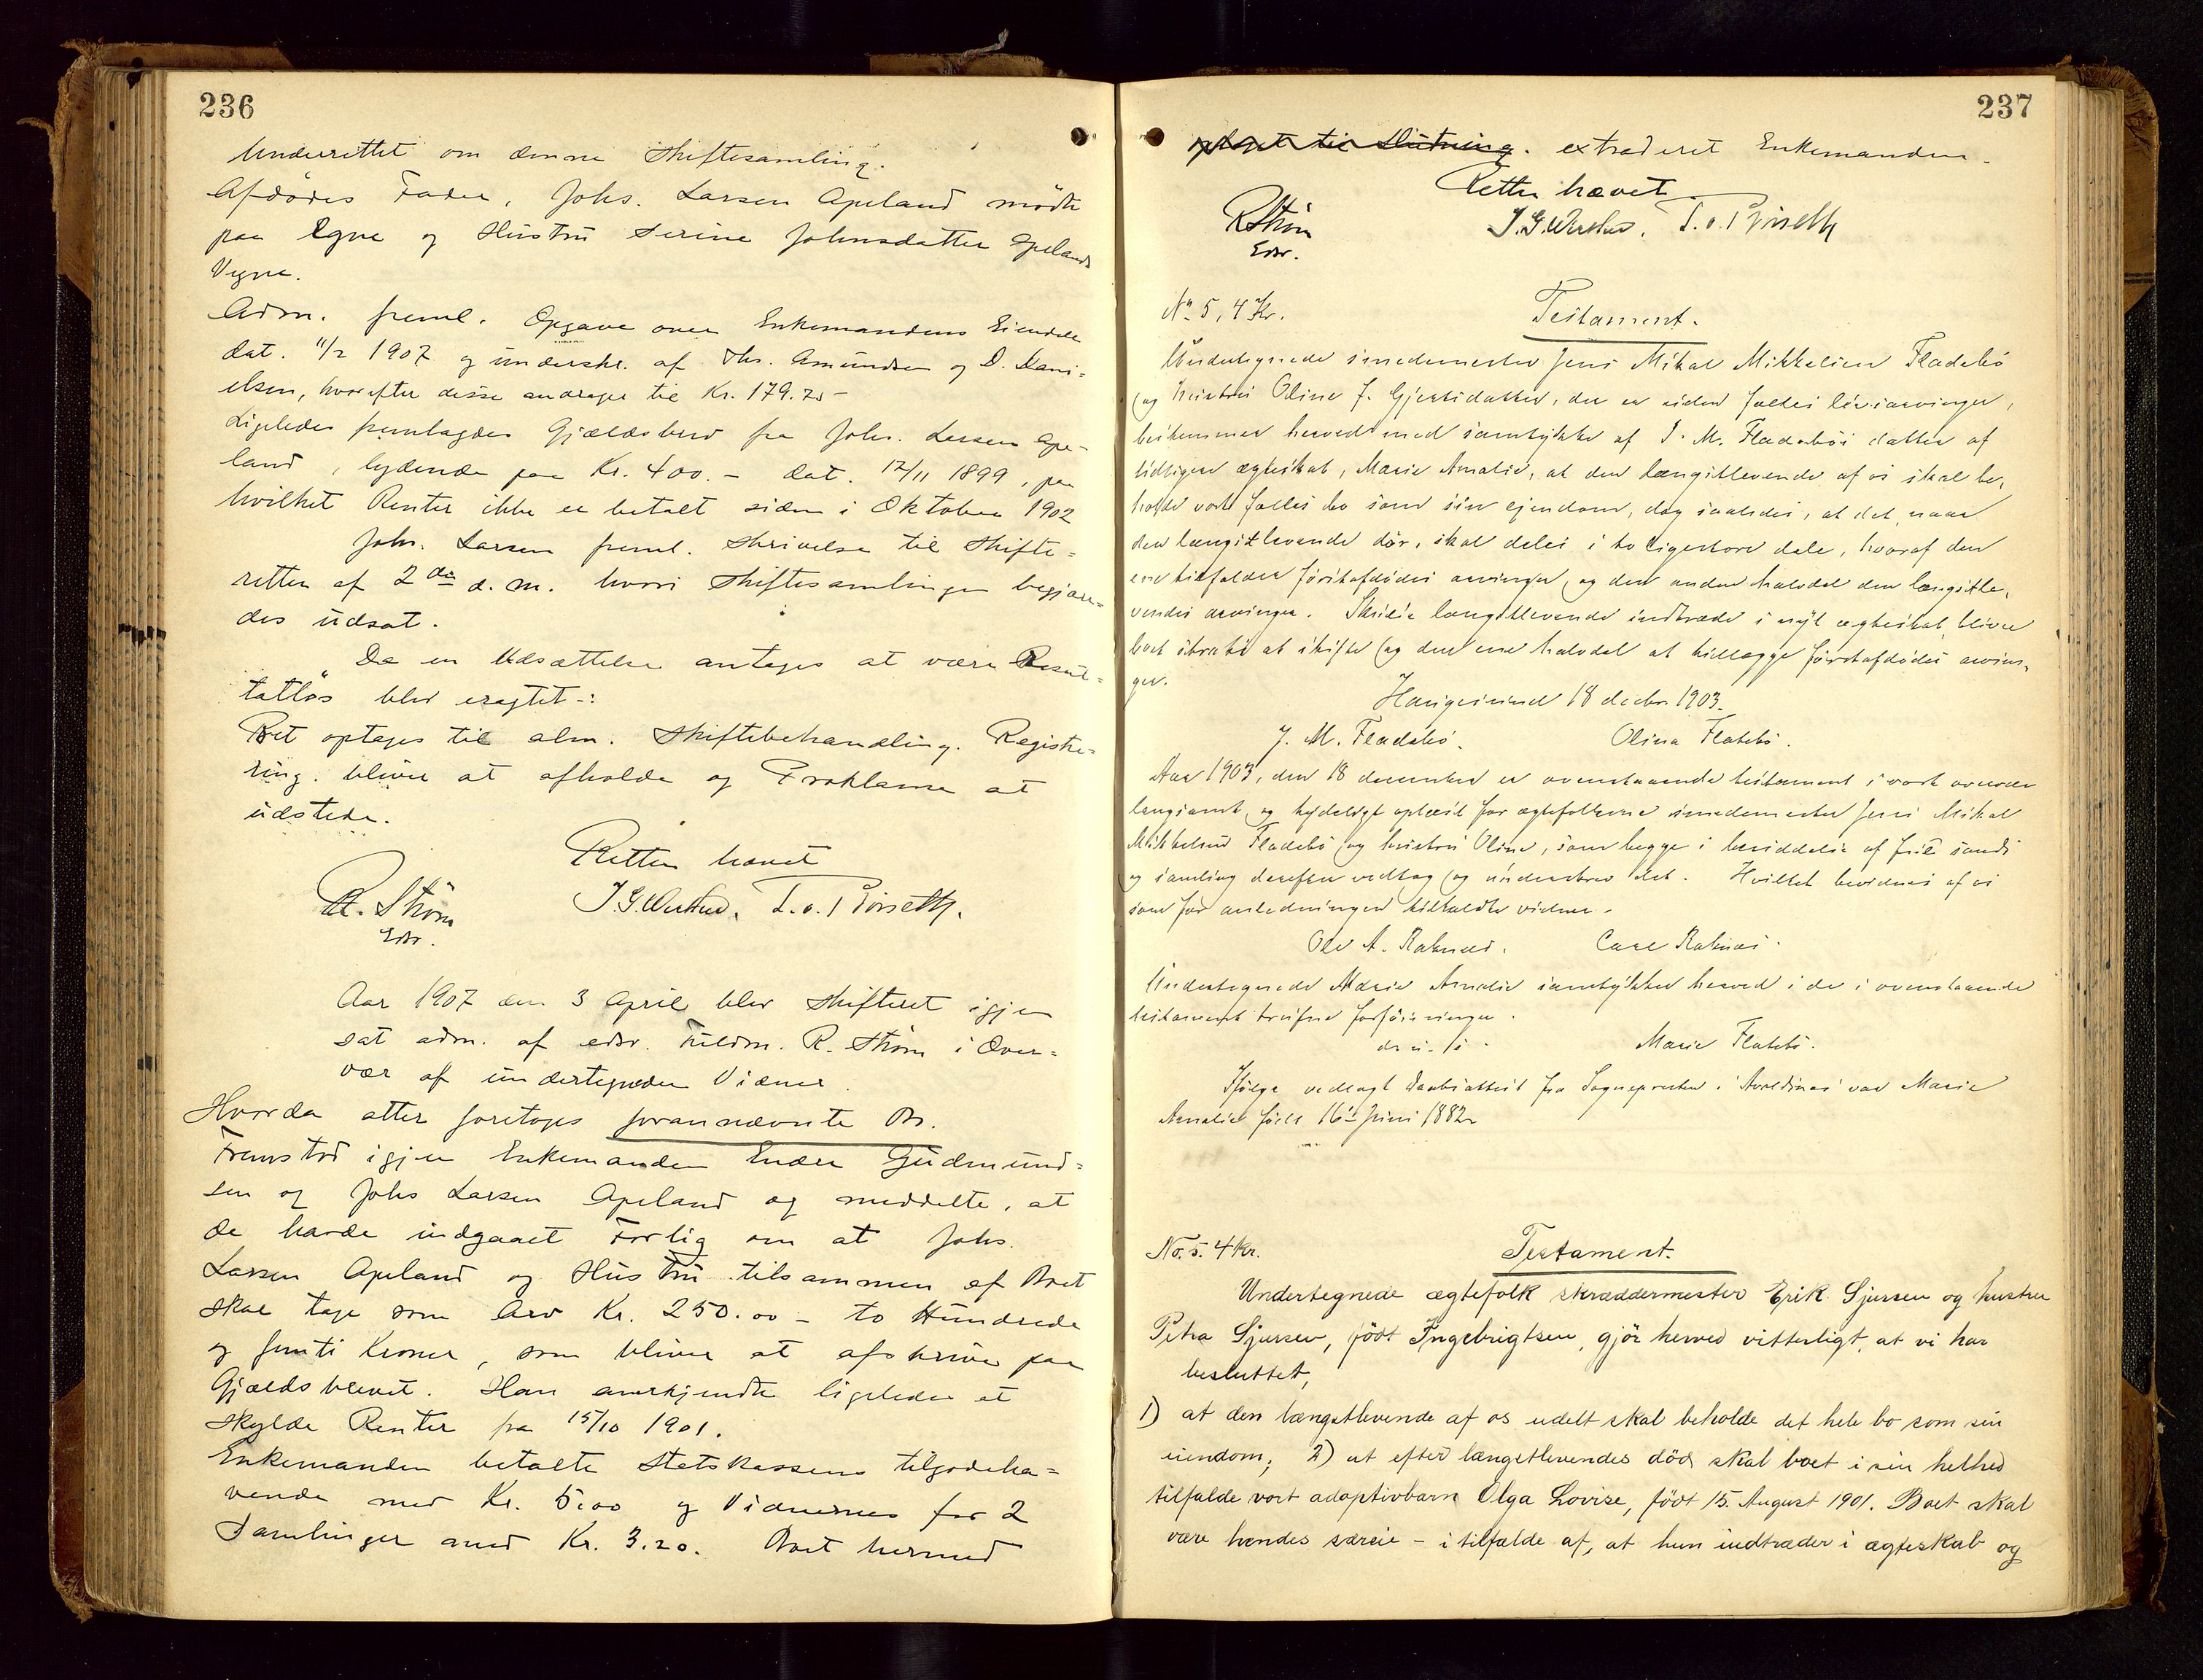 236
Underrettet om denne Skiftesamling.
Afdødes Fader, Johs. Larsen Apeland mødte
paa Egne og Hustru Serine Johnsdatter Apelands
Vegne.
Adm. freml. Opgave over Enkemandens Eiendele
dat. 11/2 1907 og underskr. af Ths. Amundsen og D. Dani-
elsen, hvorefter disse andrages til Kr. 179.75 -
Ligeledes fremlagdes Gjældsbrev fra Johs. Larsen Ape-
land, lydende paa Kr. 400.- dat. 12/11 1899, paa
hvilket Renter ikke er betalt siden i Oktober 1902
Johs. Larsen freml. Skrivelse til Skifte-
retten af 2den d. M. hvori Skiftesamlingen begjæres-
des udsat.
Da en Udsættelse antages at være Resul-
tatløs blev eragtet:
Boet optages til alm. Skiftebehandling. Registre-
ring. bliver at afholde og Proklama at
udstede.
Retten hævet
R. Strøm
Edsv.
Aar 1907 den 3 April blev Skifteret igjen
sat adm. af edsv. Fuldm. R. Strøm i Over-
vær af undertegnede Vidner.
Hvorda atter foretoges forannævnte Bo.
Fremstod igjen Enkemanden Endre Gudmund-
sen og Johs Larsen Apeland og meddelte, at
de havde indgaaet Forlig om at Johs.
Larsen Apeland og Hustru tilsammen af Boet
skal tage som Arv Kr. 250.00 - to Hundrede
og femti Kroner, som bliver at afskrive paa
Gjældsbrevet. Han anerkjendte ligeledes at
skylde Renter fra 15/10 1901.
Enkemanden betalte Statskassens tilgodeha-
vende med Kr. 5.00 og Vidnernes for 2
Samlinger med Kr. 3.20. Boet hermed
237
optaget til Slutning. extraderet Enkemanden.
Retten hævet
RStrøm
Edsv.
No 5, 4 Kr.
Testament.
Undertegnede smedemester Jens Mikal Mikkelsen Fladebö
og hustru Oline J. Gjertsdatter, der er uden fælles livsarvinger,
bestemmer herved med samtykke af J. M. Fladebös datter af
tidligere ægteskab, Marie Amalie, at den længstlevende af os skal be-
holde vort fælles bo som sin ejendom, dog saaledes, at det, naar
den længstlevende dör, skal deles i to ligestore dele, hvoraf den
ene tilfalder förstafdödes arvinger og den anden halvdel den længstle-
vendes arvinger. Skulde længstlevende indtræde i nyt ægteskab, bliver
boet straks at skifte og den ene halvdel at tillægge förstafdödes arvin-
ger.
Haugesund 18 decbr 1903.
J. M. Fladebö. Olina Flatebö.
Aar 1903, den 18 december er ovenstaaende testament i vort overvær
langsamt og tydeligt oplæst for ægtefolkene smedemester Jens Mikal
Mikkelsen Fladebö og hustru Oline, som begge i besiddelse af fuld sands
og samling derefter vedtog og underskrev det. Hvilket bevidnes af os
som for anledningen tilkaldte vidner.
Ole A. Raknes. Carl Raknes.
Undertegnede Marie Amalie samtykker herved i de i ovenstaaende
testament trufne forföininger.
d. u. s. Marie Flatebö.
Ifölge vedlagt daabsattest fra Sognepresten i Avaldsnes var Marie
Amalie född 16de Juni 1882.
No. 5. 4 Kr.
Testament.
Undertegnede ægtefolk skræddermester Erik Sjursen og hustru
Petra Sjursen, född Ingebrigtsen, gjör herved vitterligt, at vi har
besluttet,
1) at den længstlevende af os udelt skal beholde det hele bo som sin
eiendom; 2) at efter længstlevendes död skal boet i sin helhed
tilfalde vort adoptivbarn Olga Lovise, född 15. August 1901. Boet skal
være hendes særeie - i tilfælde af, at hun indtræder i ægteskab og